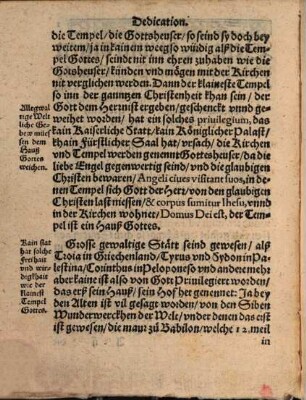 Dedication.
die Tempel/ die Gottsheuser/ so seind sy doch bey
weitem/ ja in kainem weeg so würdig alß die Tem-
pel Gottes/ seindt nit inn ehren zuhaben wie die
Gotsheuser/ künden vnd mögen mit der Kirchen
nit verglichen werden. Dann der klaineste Tempel
so inn der gantzen Christenheit khan sein / der
Gott dem Herrn ist ergeben/ geschenckt vnd ge-
weihet worden / hat ein solches priuilegium, das
kain Kaiserliche Statt/ kain Königlicher Palast/
khain Fürstlicher Saal hat/ vrsach/ die Kirchen
vnd Tempel werden genennt Gottsheuser/ da die
liebe Engel gegenwertig seind/ vnd die glaubigen
Christen bewaren/ Angeli ciues visitant suos, zu de-
nen Tempel sich Gott der Herr/ von den glaubigen
Christen last niessen/ & corpus sumitur Ihesu, vnnd
in der Kirchen wohnet/ Domus Dei est, der Tem-
pel ist ein Hauß Gottes.
Allegwal-
tige Welt
liche Ge-
bew mies-
sen dem
Hauß
Gottes
weichen.
Grosse gewaltige Stätt seind gewesen / alß
Troia in Griechenland/ Tyrus vnd Sydon in Pa-
lestina/ Corinthus in Peloponeso vnd andere mehr
aber kaine ist also von Gott Priuilegiert worden/
das er sein Hauß/ sein Hof her genennet: Ja bey
den Alten ist vil gesagt worden/ von den Siben
Wunderwerckhen der Welt/ vnder denen das eist
ist gewesen/ die maur zů Babilon/ welche 12. meil
Kain stat
hat solche
Freihait
vnd wir-
digkhait
wie der
klainest
Tempel
Gottes.
in